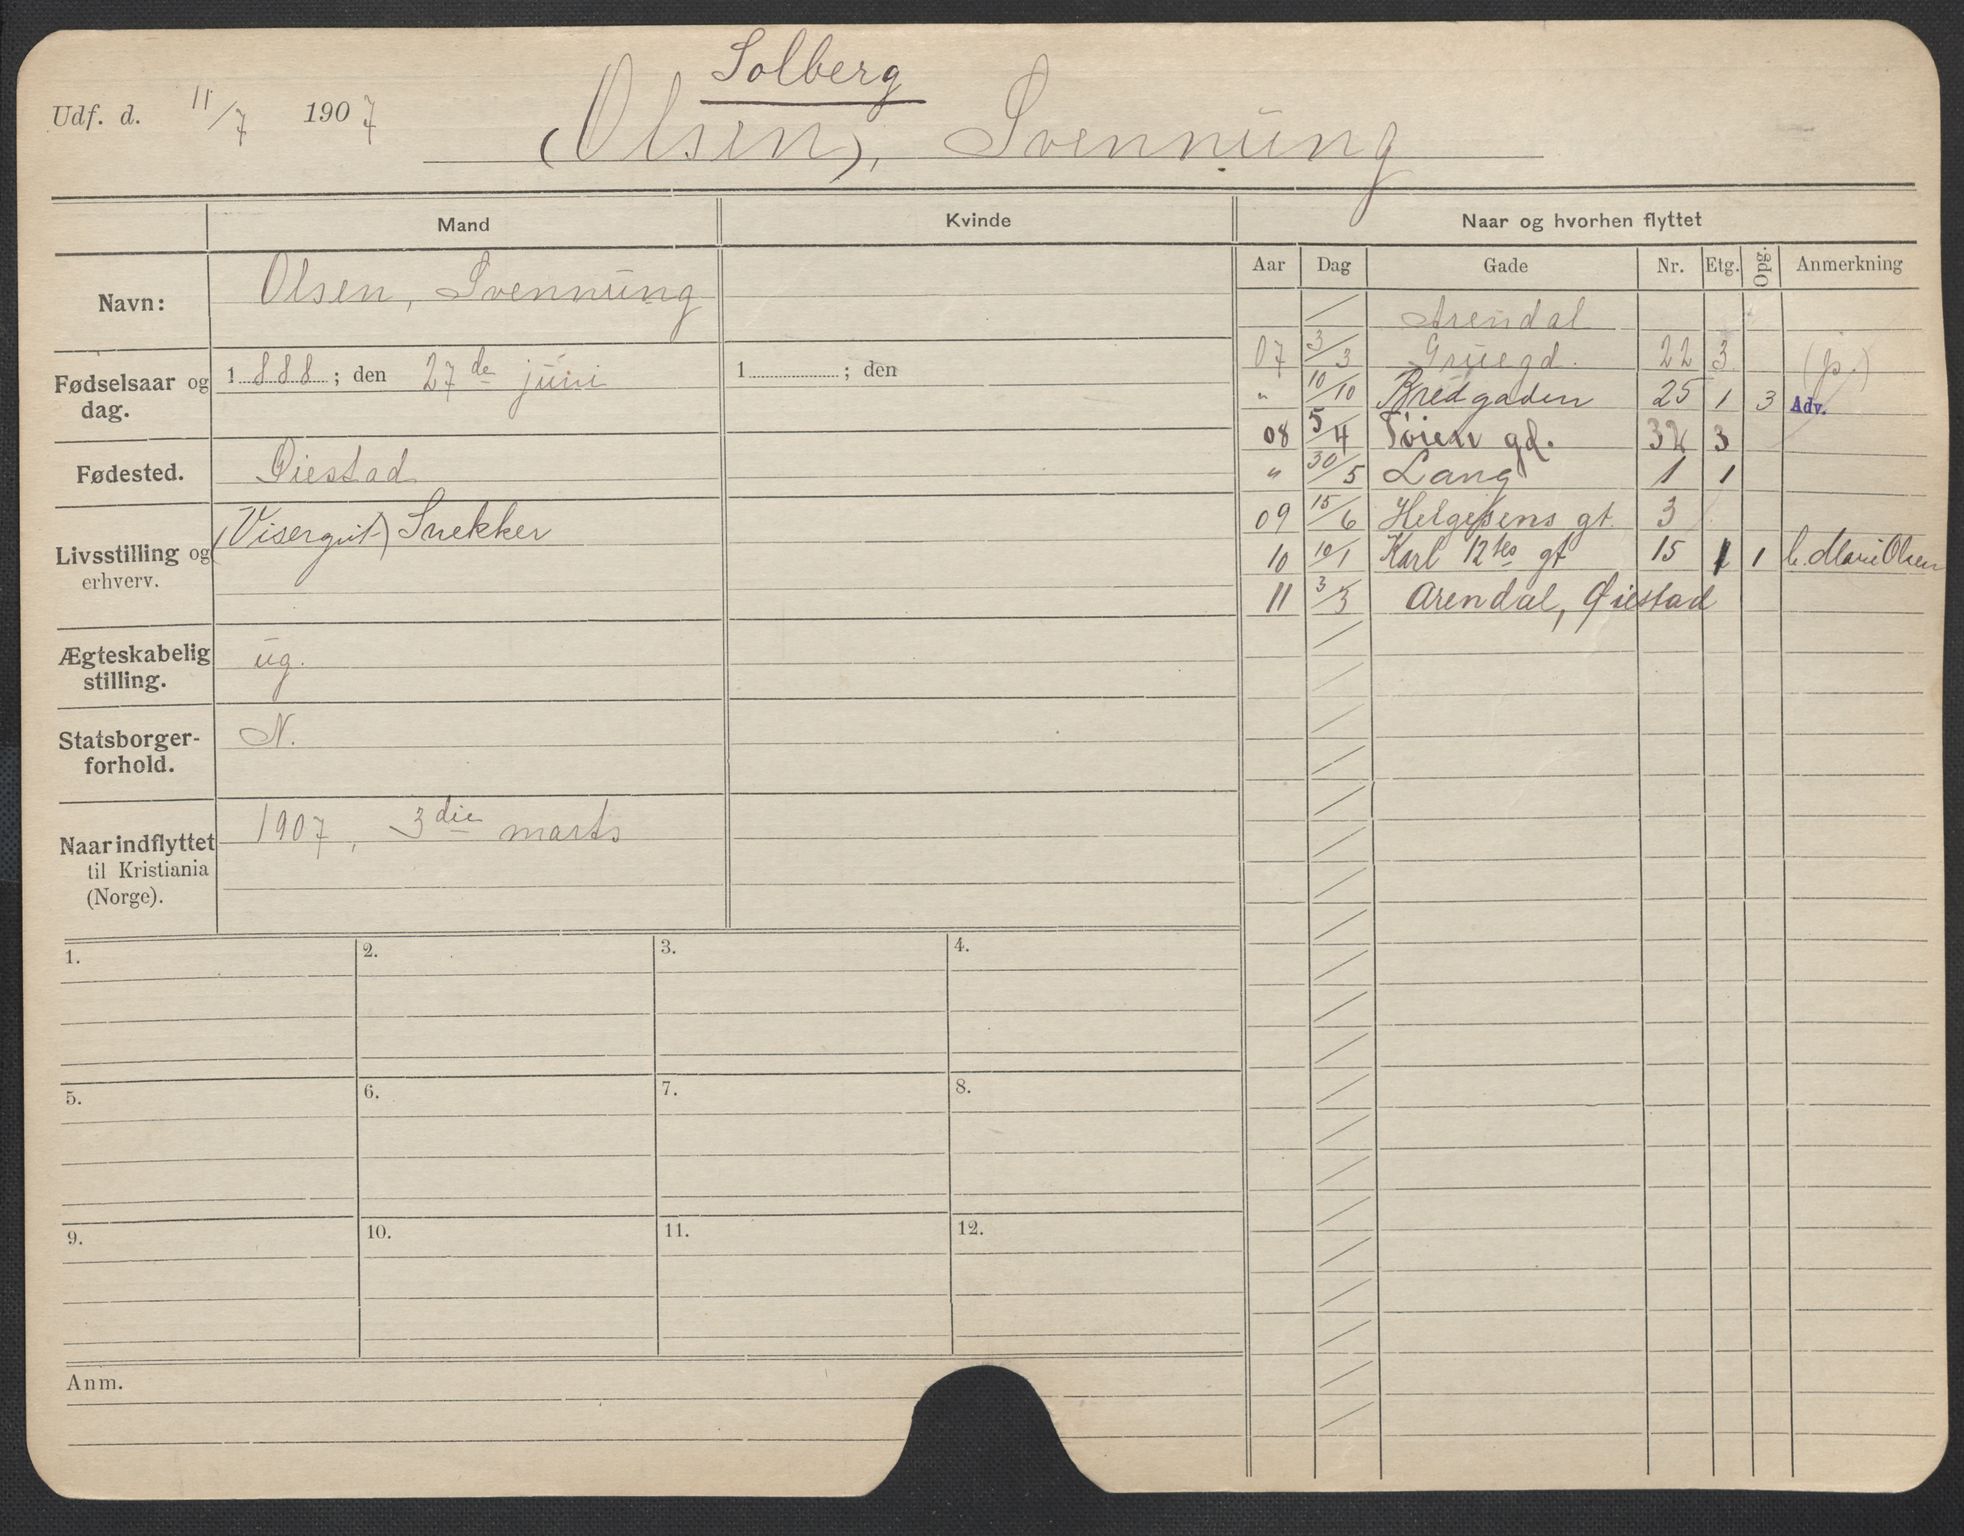 Solberg
Udf. d. 11/7 1907
(Olsen), Svennung
Mand Kvinde Naar og hvorhen flyttet
Aar Dag Gade Nr. Etg. Opg. Anmerkning
Navn: Olsen, Svennung
Fødselsaar og dag. 1888; den 27de juni 1 ; den
Fødested. Øiestad
Livsstilling og erhverv. (Visergut) Snekker
Ægteskabelig stilling. ug.
Statsborger-forhold. N.
Naar indflyttet til Kristiania (Norge). 1907, 3die marts
Arendal
07 3/3 Gruegd. 22 3
" 10/10 Bredgaden 25 1 3 Adv.
08 5/4 Tøien gd. 3
" 30/5 Lang 1 1
09 15/6 Helgesens gt. 3
10 10/1 Karl 12tes gt 15 1 1 Marie Olsen
11 3/3 Arendal, Øiestad
1. 2. 3. 4.
5. 6. 7. 8.
9. 10. 11. 12.
Anm.